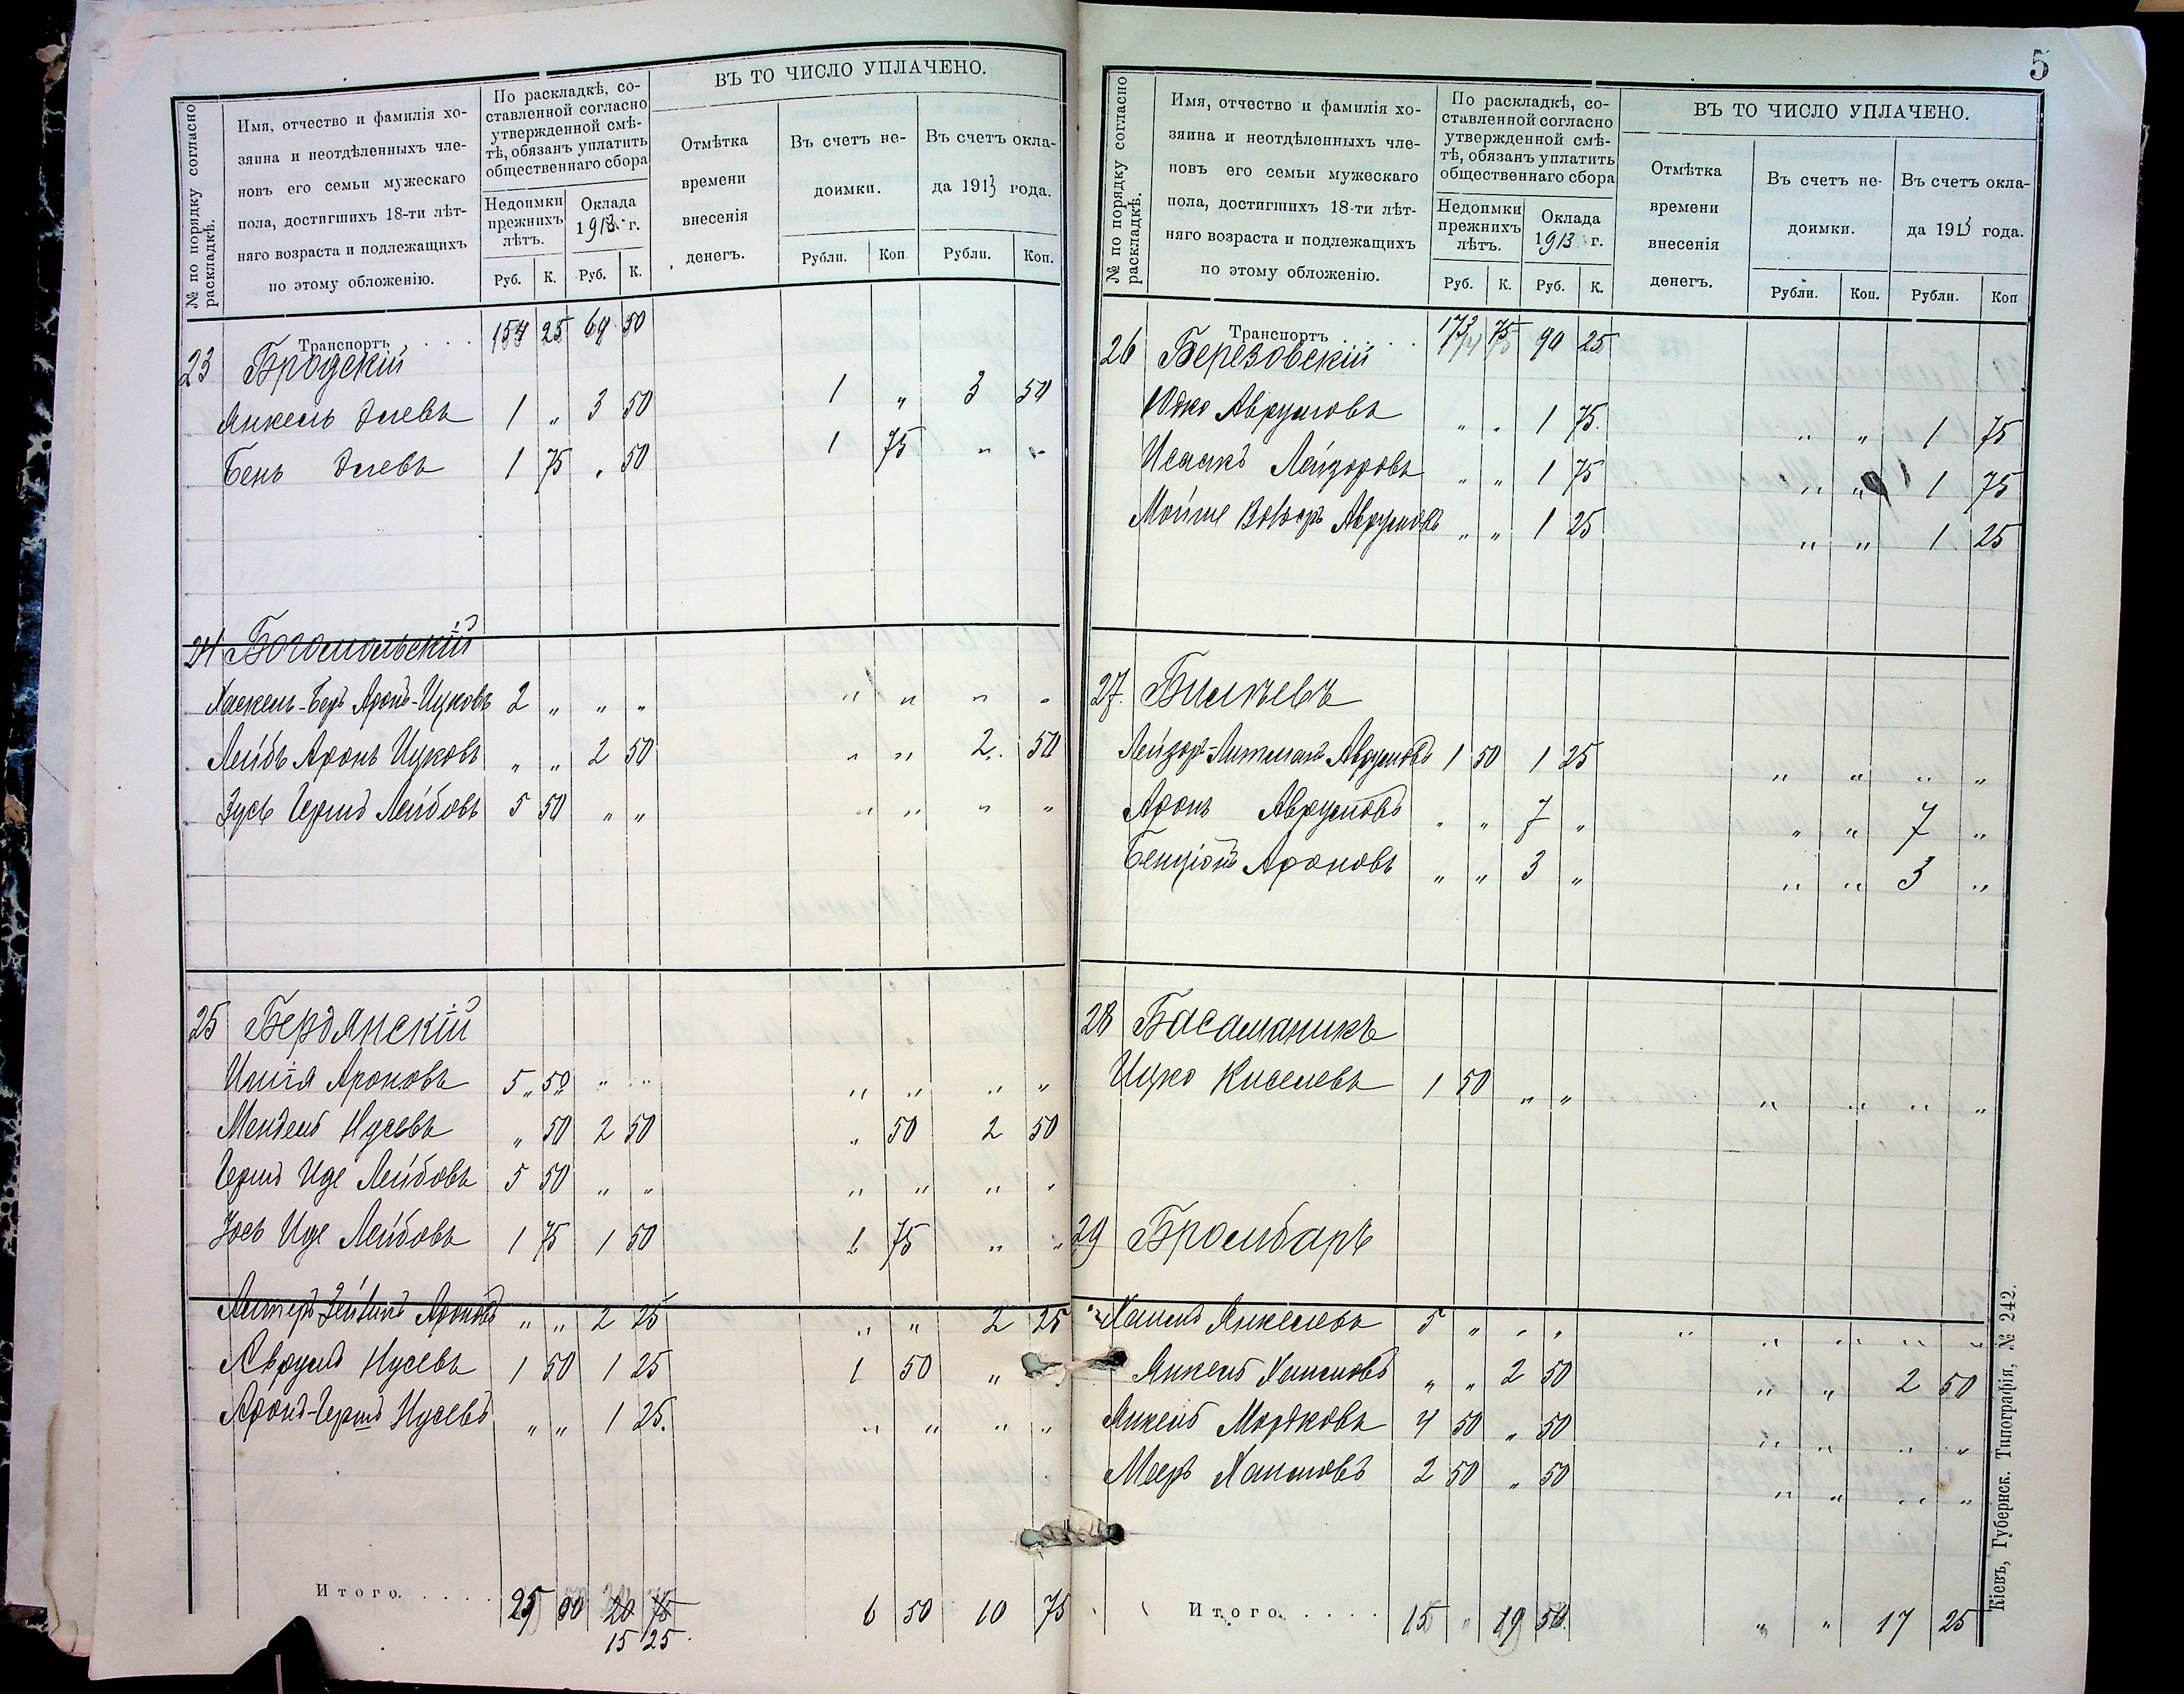 № по порядку согласно раскладкѣ.
Имя, отчество и фамилія хо-
зяина и неотдѣленныхъ чле-
новъ его семьи мужескаго
пола, достигшихъ 18-ти лѣт-
няго возраста и подлежащихъ
по этому обложенію.
По раскладкѣ, со-
ставленной согласно
утвержденной смѣ-
тѣ, обязанъ уплатить
общественнаго сбора
Недоимки прежнихъ лѣтъ.
Оклада 1913 г.
Руб. К. Руб. К.
ВЪ ТО ЧИСЛО УПЛАЧЕНО.
Отмѣтка времени внесенія денегъ.
Въ счетъ не-доимки.
Въ счетъ окла-да 1913 года.
Рубли. Коп. Рубли. Коп.
Транспортъ . . . . 25 69 50
23 Бродскій
Янкель 1 " 3 50 1 " 3 50
Бень 1 75 " 50 1 75 " "
24 Богомольскій
Хаскель-Беръ Аронъ-Ицковъ 2 " " " " " " "
Лейбъ Аронъ Ицковъ " " 2 50 " " 2 50
Зусь Гершъ Лейбовъ 5 50 " " " " " "
25 Бердянскій
Ароновъ 5 50 " " " " " "
Мендель Нусевъ " 50 2 50 " 50 2 50
Гершъ Иде Лейбовъ 5 50 " " " " " "
Иде Лейбовъ 1 75 1 50 1 75 " "
" " 2 25 " " 2 25
Аврумъ Нусевъ 1 50 1 25 1 50 "
Аронъ-Гершъ Нусевъ " " 1 25. " " " "
Итого. . . . . 25 50 20 75 6 50 10 75
15 25
5
№ по порядку согласно раскладкѣ.
Имя, отчество и фамилія хо-
зяина и неотдѣленныхъ чле-
новъ его семьи мужескаго
пола, достигшихъ 18-ти лѣт-
няго возраста и подлежащихъ
по этому обложенію.
По раскладкѣ, со-
ставленной согласно
утвержденной смѣ-
тѣ, обязанъ уплатить
общественнаго сбора
Недоимки прежнихъ лѣтъ.
Оклада 1913 г.
Руб. К. Руб. К.
ВЪ ТО ЧИСЛО УПЛАЧЕНО.
Отмѣтка времени внесенія денегъ.
Въ счетъ не-доимки.
Въ счетъ окла-да 1913 года.
Рубли. Коп. Рубли. Коп
Транспортъ . . . . 75 90 25
26 Березовскій
Юдко Аврумовъ " " 1 75. " " 1 75
Исаакъ Лейзоровъ " " 1 75 " " 1 75
Мойше Аврумовъ " " 1 25 " " 1 25
27. Бишъевъ
Аврумовъ 1 50 1 25 " " " "
Аронъ Аврумовъ " " 7 " " " 7 "
Бенціонъ Ароновъ " " 3 " " " 3 "
28 Басаманикъ
Ицко Киселевъ 1 50 " " " " " "
29 Бромбаръ
Хаимъ Янкелевъ 5 " " " " " " " "
Янкель Хаимовъ " " 2 50 " " 2 50
Янкель Мордковъ 4 50 " 50 " " " "
Мееръ Хаимовъ 2 50 " 50 " " " "
Итого. . . . . 15 " 19 50 " " 17 25
Кіевъ, Губернск. Типографія, № 242.